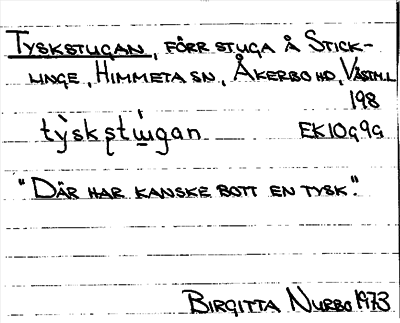 TYSKSTUGAN, FÖRR STUGA Å STICK-
LINGE, HIMMETA SN, ÅKERBO HD, VÄSTM.L
198
tỳskstu̇gan EK10G9G
"DÄR HAR KANSKE BOTT EN TYSK."
BIRGITTA NURBO 1973